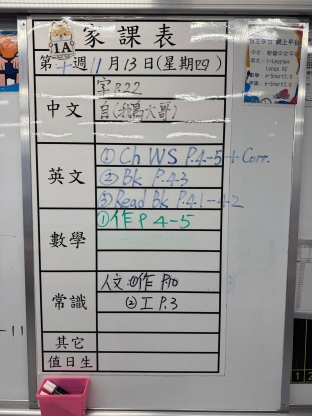 家課表
1A
第十週11月13日(星期四)
中文
字P.22
英文
① Ch WS P.4-5 + Corr.
② Bk P.43
③ Read Bk P.41-42
數學
①作 P 4-5
常識
人文:①作 P.10
② 工 P.3
其它
值日生